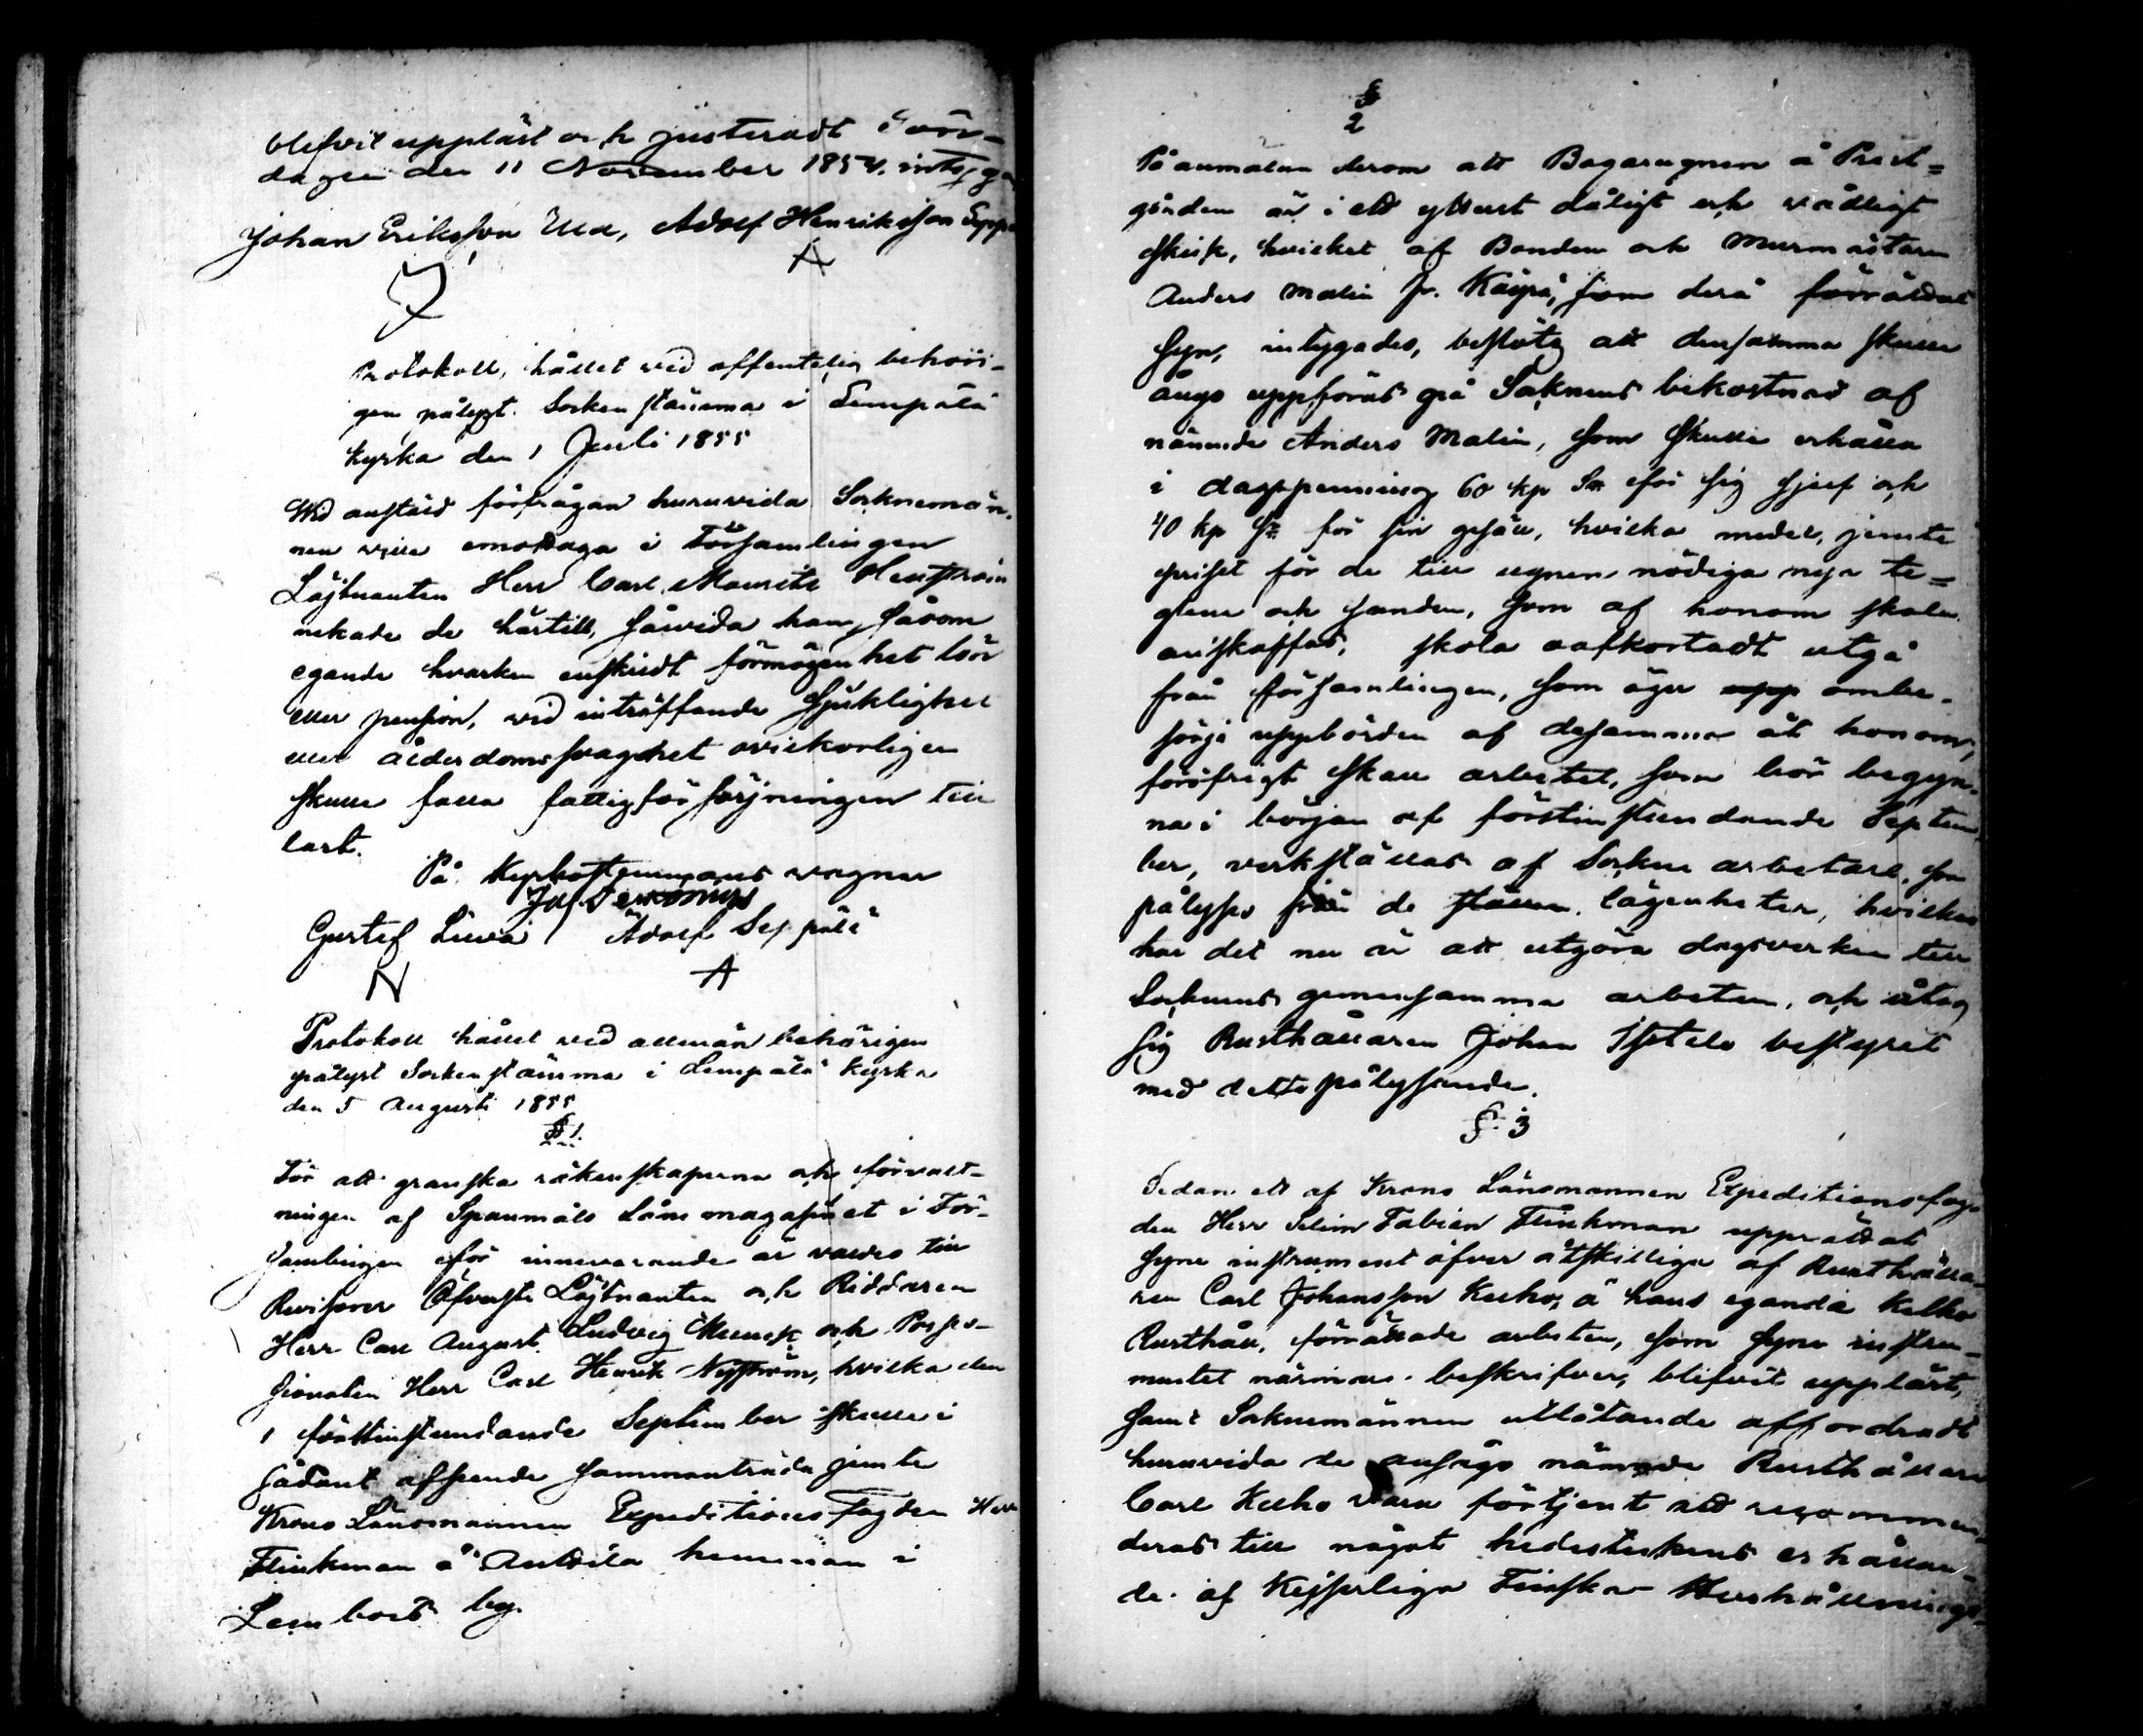 blefvit uppläst och justeradt Sön-
dagen den 11 November 1854. intyga
Johan Eriksson Ella, Adolf Henriksson Seppä
A
Protokoll, hållet vid offentelig behöri-
gen pålyst Sockenstämma i Lempälä
kyrka den 1 Juli 1855
Wid anstäld förfrågan huruvida Socknemän-
nen ville emottaga i Församlingen
Löjtnanten Herr Carl Mauritz
nekade de härtill, såvida han, såsom
egande hvarken enskildt förmögenhet lön
eller pension, vid inträffande sjuklighet
eller ålderdomssvaghet ovilkorligen
skulle falla fattigförsörjningen till
last.
På Kyrkostemmans vagnar
Gustef Liuva Adolf Seppälä
N A
Protokoll hållet vid allmän behörigen
pålyst Sockenstämma i Lempälä Kyrka
den 5 Augusti 1855
§ 1.
För att granska räkenskaperna och förvalt-
ningen af Spanmåls Låne magasinet i För-
samlingen för innevarande år valdes till
Revisorer Öfverste Löjtnanten och Riddaren
Herr Carl August Ludvig Munck och Posses-
sionaten Herr Carl Henrik Nyström, hvilka den
1 förstinstundande September skulle i
sådant afseende sammanträda jemte
Krono Länsmannen Expeditions Fogden Herr
Flinkman å Anttila hemman i
Lembois by.
§
2
På anmälan derom att Bagarugnen å Prest-
gården är i ett ytterst dåligt och vådligt
skick, hvilket af Bonden och Murmästaren
Anders Malin fr. Käipä, som derå förrättat
syn, intygades, beslöts att densamma skulle
ånyo uppföras på Soknens bekostnad af
nämnde Anders Malin, som skulle erhålla
i dagspenning 60 kp Sr för sig sjelf och
40 kp Sr för sin gesäll, hvilka medel, jemte
priset för de till ugnen nödiga nya te-
glen och sanden, som af honom skola
anskaffas, skola oafkortadt utgå
från församlingen, som äger upp ombe-
sörja uppbörden af desamma åt honom;
föröfrigt skall arbetet, som bör begyn-
na i början af förstinstundande Septem
ber, verkställas af Sockne arbetare, som
pålyses från de ställen lägenheter, hvilkas
tur det nu är att utgöra dagsverken till
Socknens gemensamma arbeten, och åtog
sig Rusthållaren Johan Isotalo bestyret
med detta pålysande.
§. 3
Sedan ett af Krono Länsmannen Expeditionsfog
den Herr Selim Fabian Flinkman upprättat
syne instrument öfver åtskilliga af Rusthålla-
ren Carl Johansson Kulho, å hans egande Kulho
Rusthåll, förrättade arbeten, som syne instru-
mentet närmare beskrifver, blifvit uppläst,
samt Soknemännens utlåtande affordradt
huruvida de ansågo nämnde Rusthållare
Carl Kulho vara förtjent att recommen
deras till något hederstekens erhållan-
de af Kejserliga Finska Hushållnings-